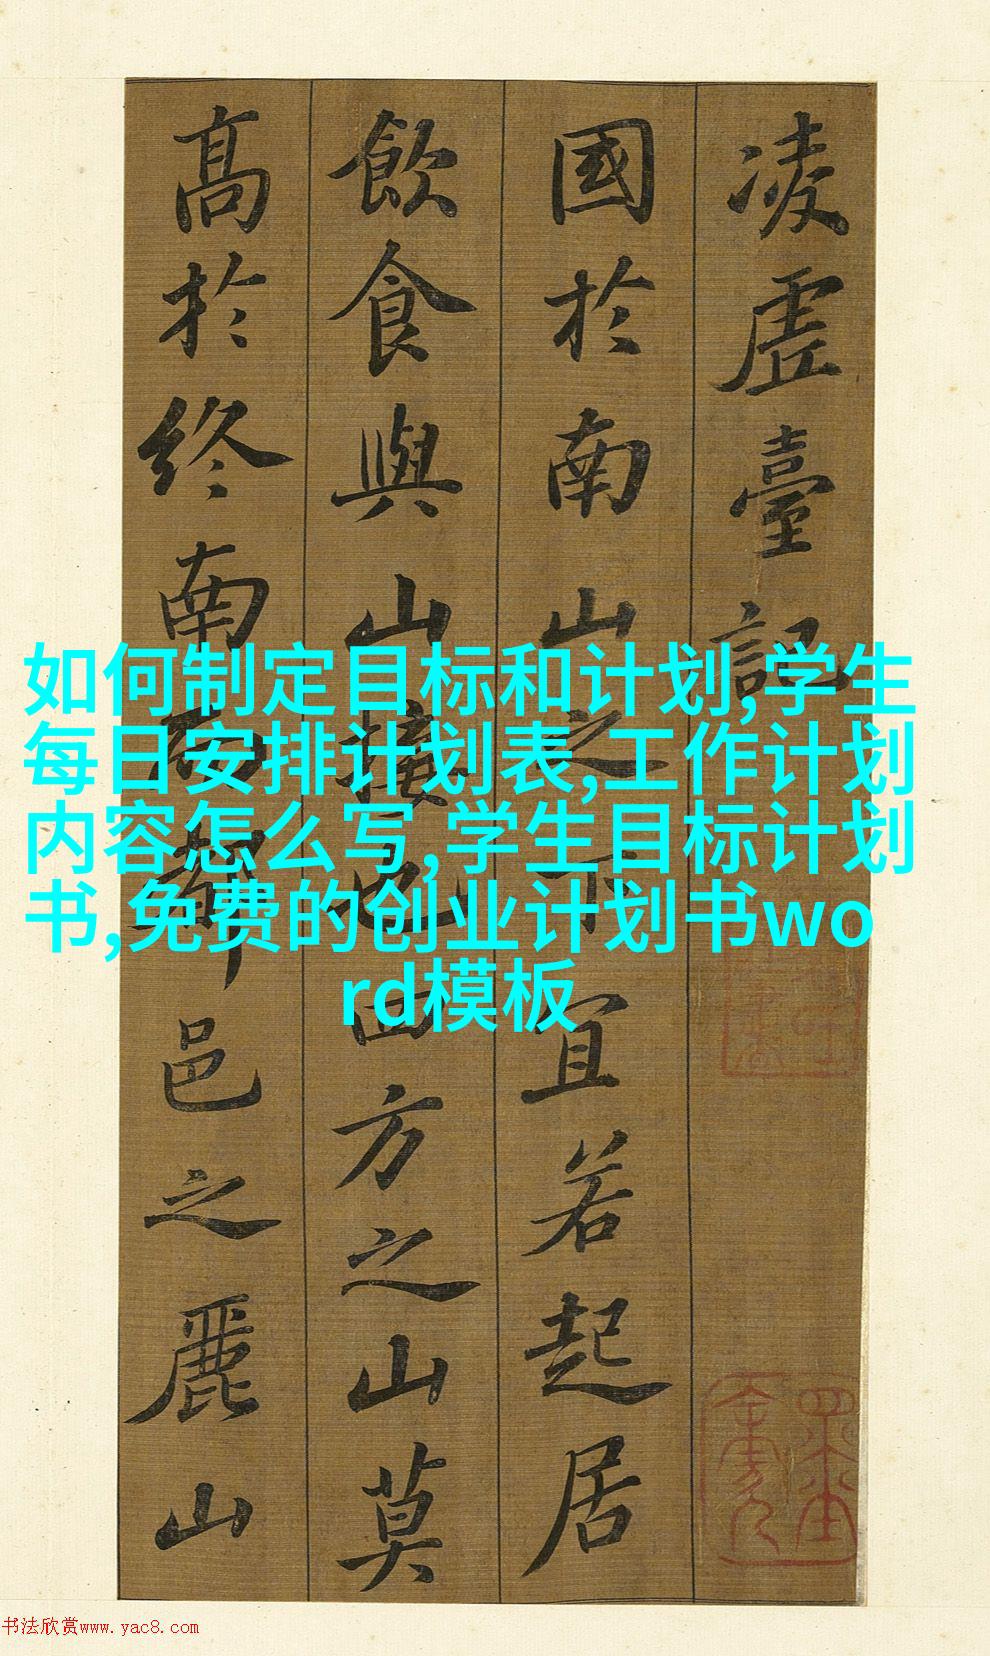 凌虛臺記
國於南山之下宜若起居
飲食與山接也四方之山莫
高於終南而都邑之麗山
如何制定目标和计划,学生
每日安排计划表,工作计划
内容怎么写,学生目标计划
书,免费的创业计划书wo
rd模板
书法欣赏www.yac8.com